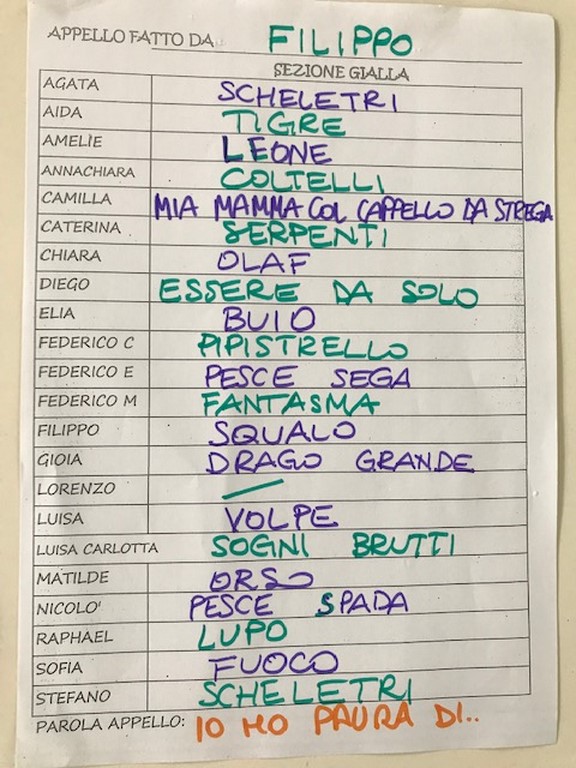 APPELLO FATTO DA FILIPPO
SEZIONE GIALLA
AGATA SCHELETRI
AIDA TIGRE
AMELIE LEONE
ANNACHIARA COLTELLI
CAMILLA MIA MAMMA COL CAPPELLO DA STREGA
CATERINA SERPENTI
CHIARA OLAF
DIEGO ESSERE DA SOLO
ELIA BUIO
FEDERICO C PIPISTRELLO
FEDERICO E PESCE SEGA
FEDERICO M FANTASMA
FILIPPO SQUALO
GIOIA DRAGO GRANDE
LORENZO —
LUISA VOLPE
LUISA CARLOTTA SOGNI BRUTTI
MATILDE ORSO
NICOLO' PESCE SPADA
RAPHAEL LUPO
SOFIA FUOCO
STEFANO SCHELETRI
PAROLA APPELLO: IO HO PAURA DI..